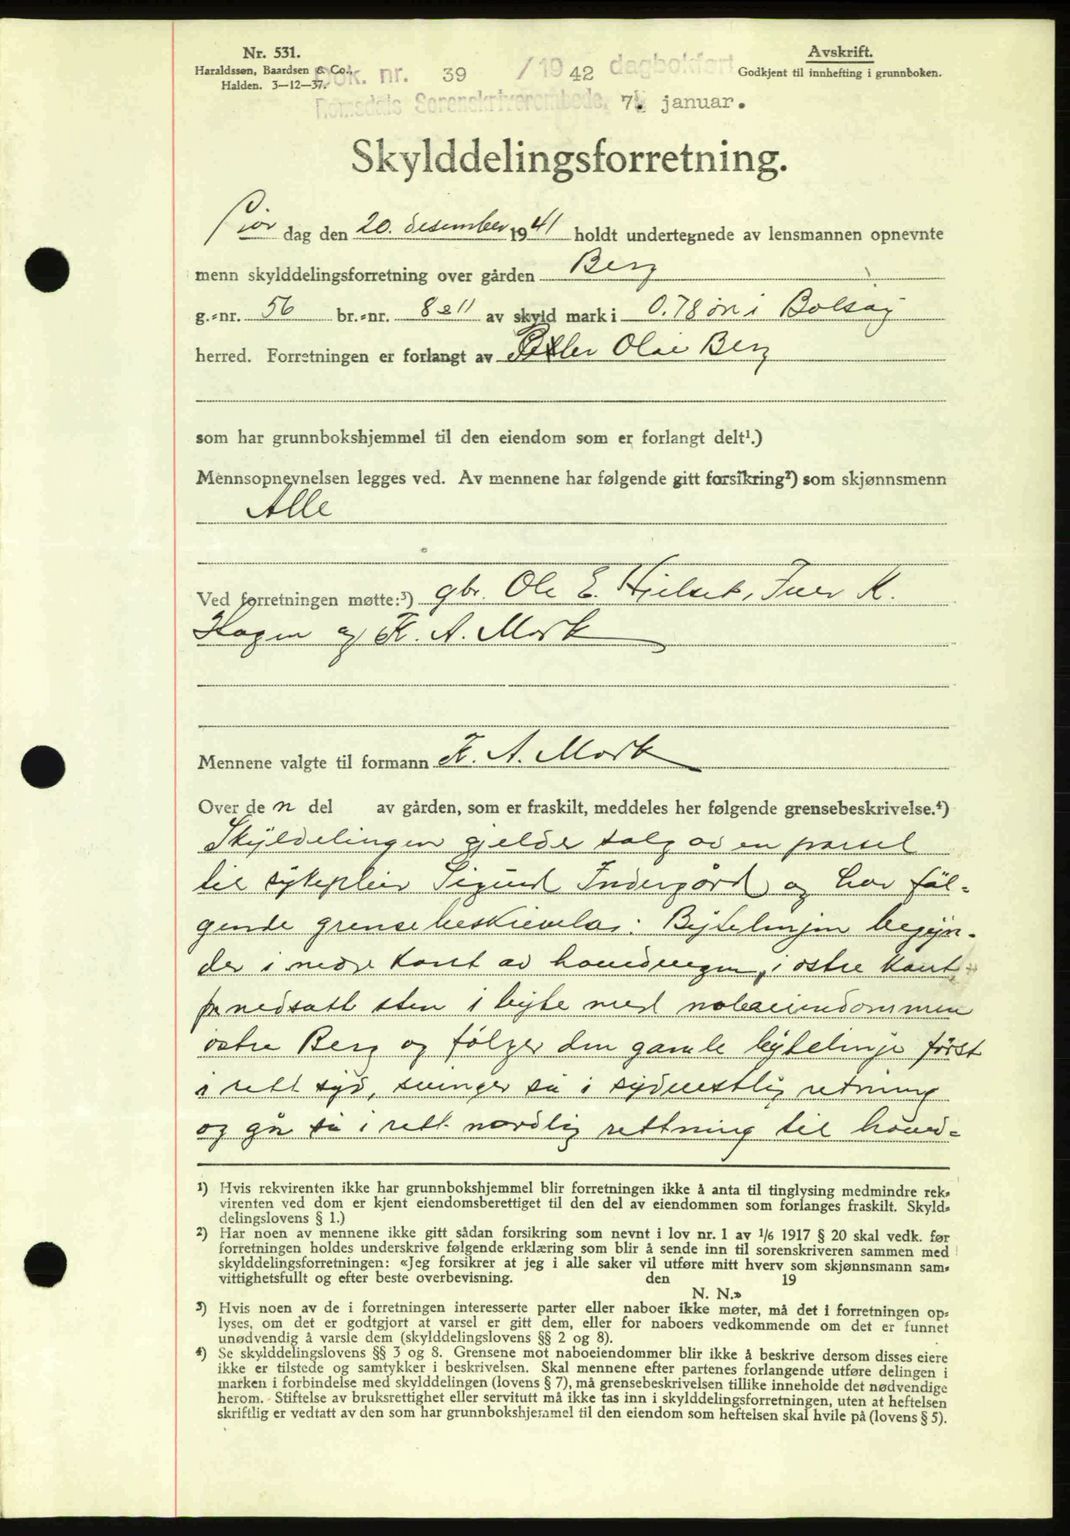 Nr. 531.
Haraldssøn, Baardsen & Co.,
Halden. 3—12—37.
Dok. nr. 39 /19 42 dagbokført
Romsdals Sorenskriverembede, 7. januar.
Avskrift.
Godkjent til innhefting i grunnboken.
Skylddelingsforretning.
dag den 20. desember 1941 holdt undertegnede av lensmannen opnevnte
menn skylddelingsforretning over gården Berg
g.-nr. 56 br.-nr. 8 & 11 av skyld mark i 0.78 øre i Bolsøy
herred. Forretningen er forlangt av Olai Berg
som har grunnbokshjemmel til den eiendom som er forlangt delt¹.)
Mennsopnevnelsen legges ved. Av mennene har følgende gitt forsikring²) som skjønnsmenn
Alle
Ved forretningen møtte:³) gbr. Ole E. Hjelset, Iver K.
Hagen og K. A. Mork
Mennene valgte til formann K. A. Mork
Over de n del av gården, som er fraskilt, meddeles her følgende grensebeskrivelse.⁴)
Skyldelingen gjelder salg av en parsel
til sykepleier Sigurd Indergård og har føl-
gende grensebeskrivelse: Bytelinjen begyn-
der i nedre kant av hovedvegen, i østre kant
på nedsatt sten i byte med naboeiendommen
østre Berg og følger den gamle bytelinje først
i rett syd, svinger så i sydvestlig retning
og går så i rett nordlig rettning til hoved-
¹) Hvis rekvirenten ikke har grunnbokshjemmel blir forretningen ikke å anta til tinglysing medmindre rek-
virenten ved dom er kjent eiendomsberettiget til den del av eiendommen som forlanges fraskilt. Skyld-
delingslovens § 1.)
²) Har noen av mennene ikke gitt sådan forsikring som nevnt i lov nr. 1 av 1/6 1917 § 20 skal vedk. før
forretningen holdes underskrive følgende erklæring som blir å sende inn til sorenskriveren sammen med
skylddelingsforretningen: «Jeg forsikrer at jeg i alle saker vil utføre mitt hverv som skjønnsmann sam-
vittighetsfullt og efter beste overbevisning. den 19
N. N.»
³) Hvis noen av de i forretningen interesserte parter eller naboer ikke møter, må det i forretningen op-
lyses, om det er godtgjort at varsel er gitt dem, eller for naboers vedkommende om det er funnet
unødvendig å varsle dem (skylddelingslovens §§ 2 og 8).
⁴) Se skylddelingslovens §§ 3 og 8. Grensene mot naboeiendommer blir ikke å beskrive dersom disses eiere
ikke er tilstede og samtykker i beskrivelsen. Skal mennene efter partenes forlangende utføre delingen i
marken i forbindelse med skylddelingen (lovens § 7), må grensebeskrivelsen tillike inneholde det nødvendige
herom. Stiftelse av bruksrettighet eller servitutt må ikke tas inn i skylddelingsforretningen, uten at heftelsen
skriftlig er vedtatt av den som har grunnbokshjemmel til den eiendom som heftelsen skal hvile på (lovens § 5).